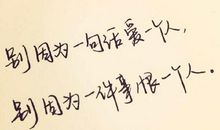 别因为一句话爱一个人，
别因为一件事恨一个人。